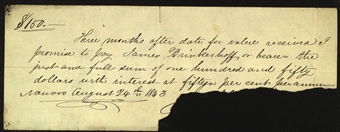 $150.
Three months after date for value received I
promise to pay James Brinkerhoff, or bearer the
just and full sum of one hundred and fifty
dollars with interest at fifteen per cent per annum
Nauvoo August 24th 1843